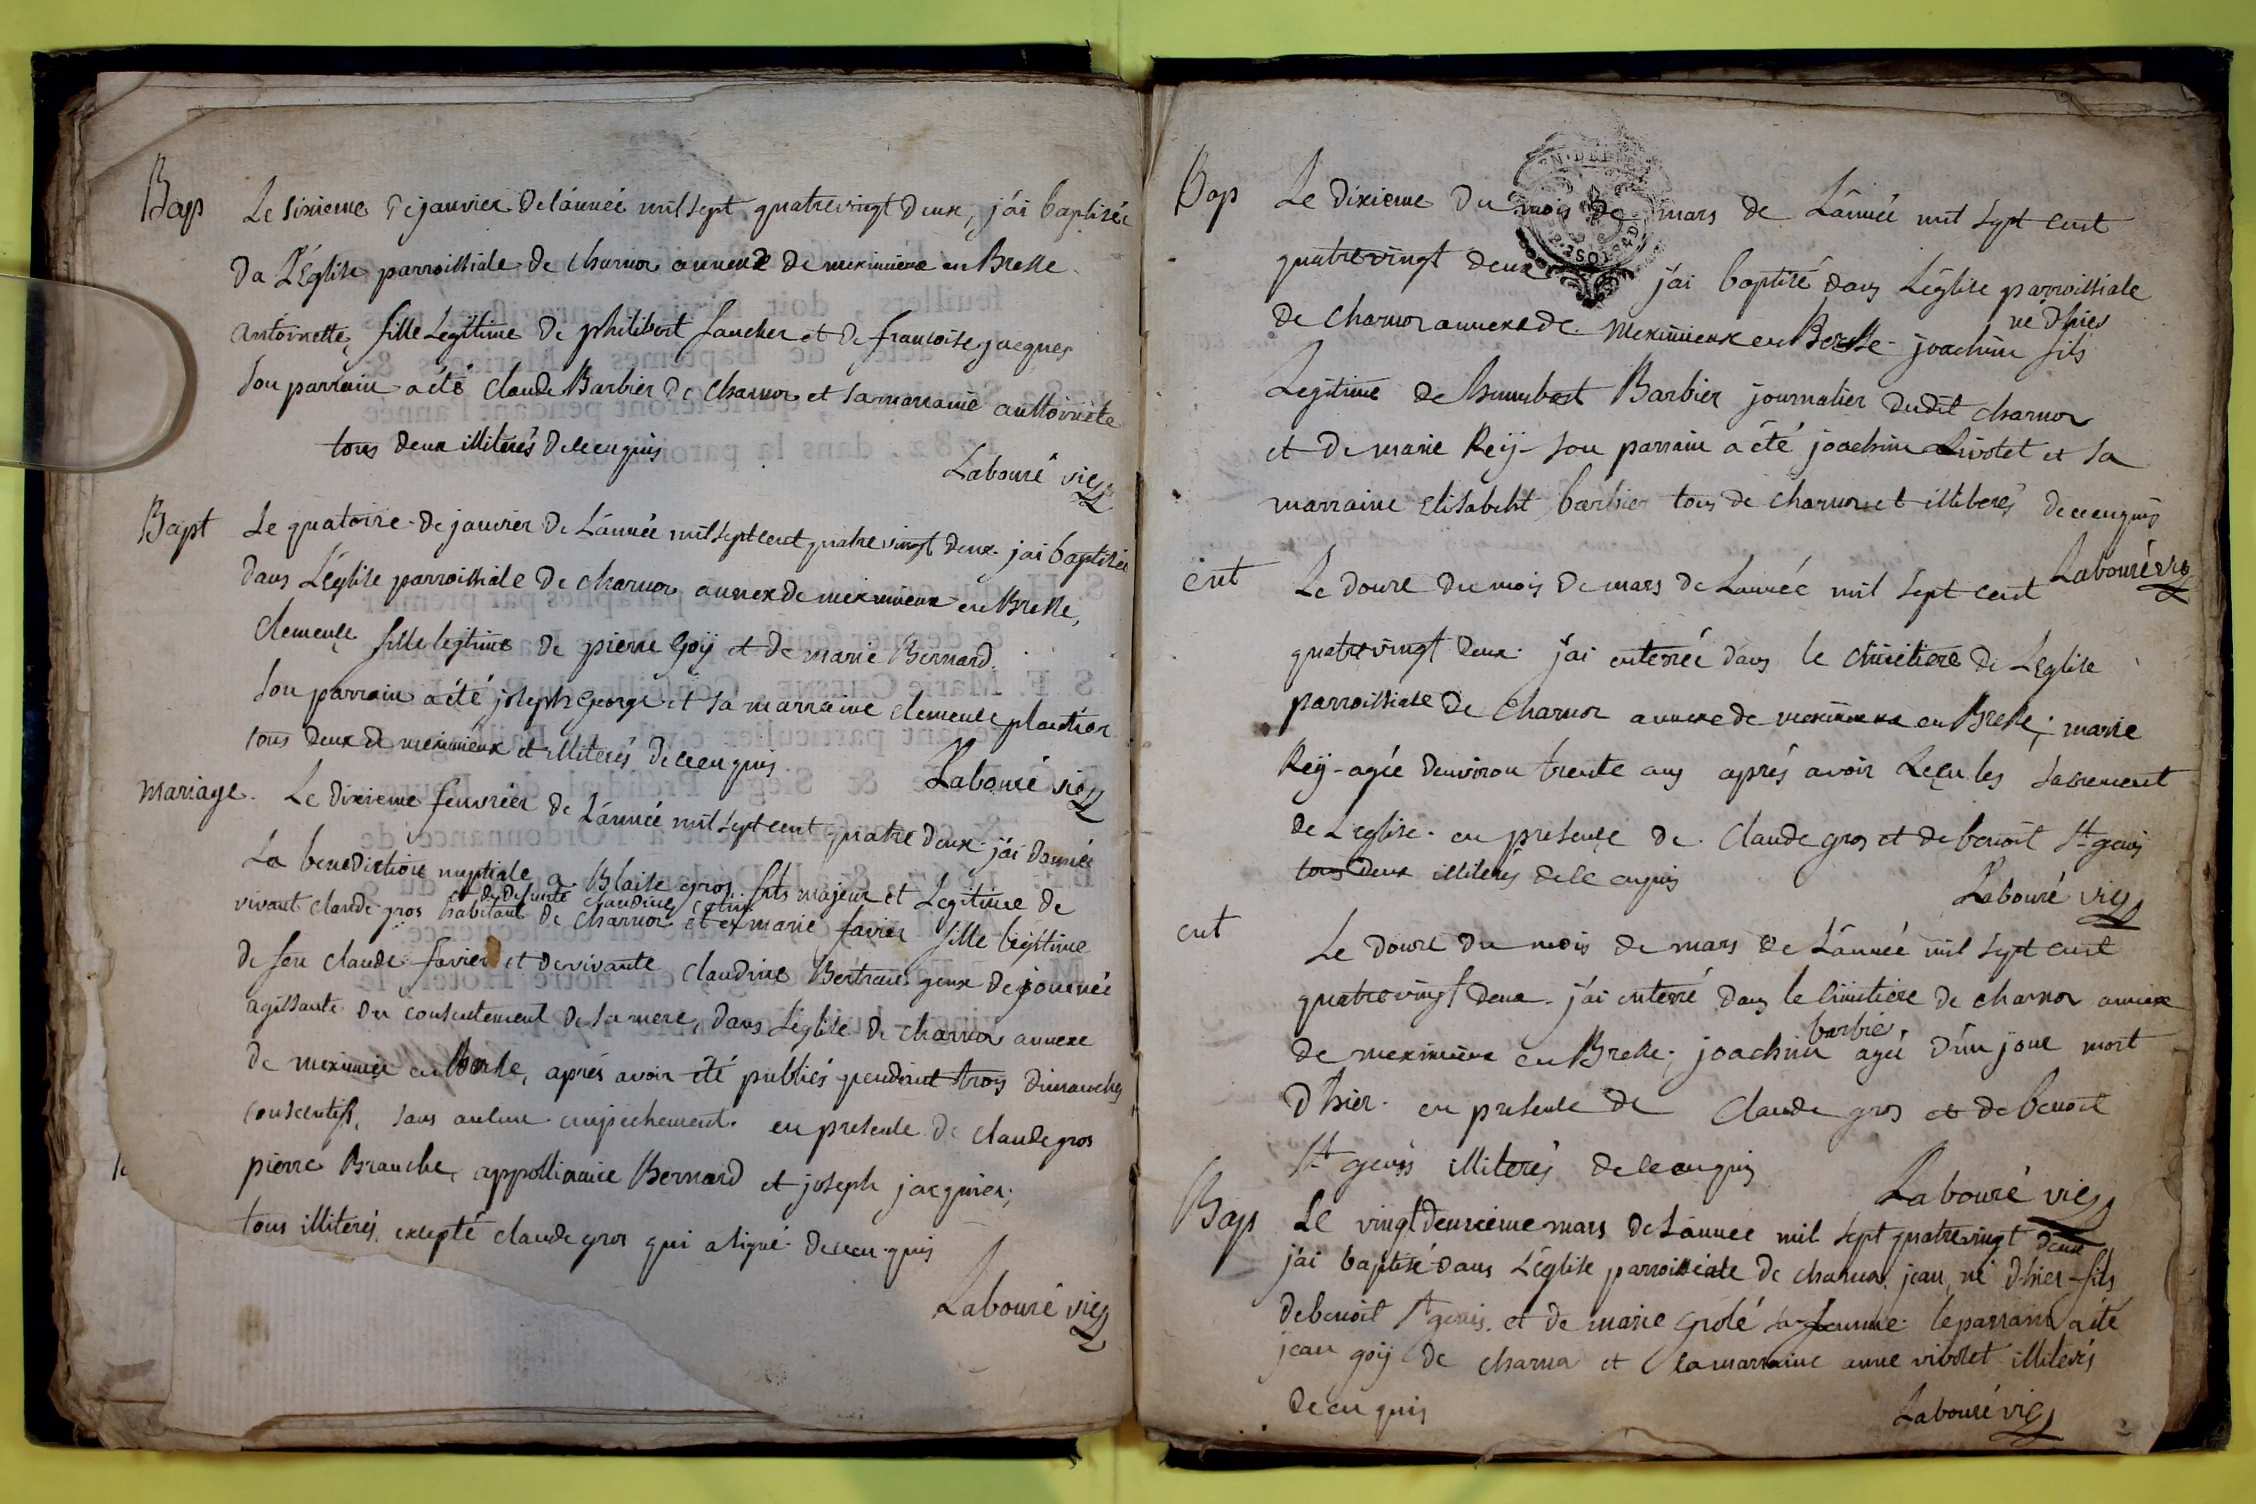 Bap Le sixieme de janvier de l'année mil sept quatrevingt deux, j'ai baptisée
da L'Eglise parroissiale de charnox annexe de meximieux en Bresse
antoinette, fille Legitime de philibert fancher et de francoise jacques
son parrain a été claude Barbier de charnox et sa marraine anttoinete
tous deux illiterés de ce enquis
Labouré vic
Bapt Le quatorze de janvier de L'année mil sept cent quatre vingt deux j'ai baptisée
dans L'eglise parroissiale de charnox annex de meximieux en Bresse,
clemence fille legitime de pierre Goÿ et de marie Bernard.
son parrain a été joseph George et sa marraine clemence
tous deux de meximieux et illiterés de ce enquis
Labouré vic
Mariage. Le dixieme fevvrier de L'année mil sept cent quatre deux j'ai donnée
La benediction nuptiale a Blaise gros fils majeur et Legitime de
et de defunte claudine
vivant claude gros habitant de charnox et marie favier fille legitime
de feu claude favier et de vivante claudine Bertrane gens de journée
agissante du consentement de sa mere, dans L'eglise de charnox annexe
de meximiex en Bresse, aprés avoir été publiés pendant trois dimanches
consecutifs, sans aucun empechement. en presence de claude gros
pierre Branche, appollinaire Bernard et joseph jacquier,
tous illiterés, excepté claude gros qui a signé de ce en quis
Labouré vic
Bap Le dixieme du mois de mars de L'année mil sept cent
quatrevingt deux j'ai baptisé dans L'eglise parroissiale
né d'hier
de charnox annexe de Meximieux en Bresse joachim fils
Legitime de humbert Barbier journalier dudit charnox
et de marie Reÿ - son parrain a été joachim Livolet et sa
marraine Elisabeht barbier tous de charnox et illiterés de ce enquis
Labouré vic
ent Le douze du mois de mars de L'année mil sept cent
quatrevingt deux j'ai enterrée dans le cimetiere de L'Eglise
parroissiale de charnox annexe de meximieux en Bresse, marie
Reÿ - agée d'environ trente ans aprés avoir Reçu les sacrement
de L'eglise. en presence de claude gros et de benoit St genis
tous deux illiterés de ce enquis
Labouré vic
ent Le douze du mois de mars de L'année mil sept cent
quatrevingt deux. j'ai enterré dans le cimetiere de charnox annexe
barbié.
de meximieux en Bresse, joachim agée d'un jour mort
d'hier. en presence de claude gros et de benoit
St genis illiterés de ce enquis
Labouré vic
Bap Le vingtdeuxiemes mars de L'année mil sept quatrevingt deux
j'ai baptisé dans L'eglise parroissiale de charnox, jean, né d'hier fils
de benoit St genis, et de marie Grolé sa femme le parrain a été
jean goÿ de charnox et la marraine anne vivolet illiterés
de ce enquis
Labouré vic